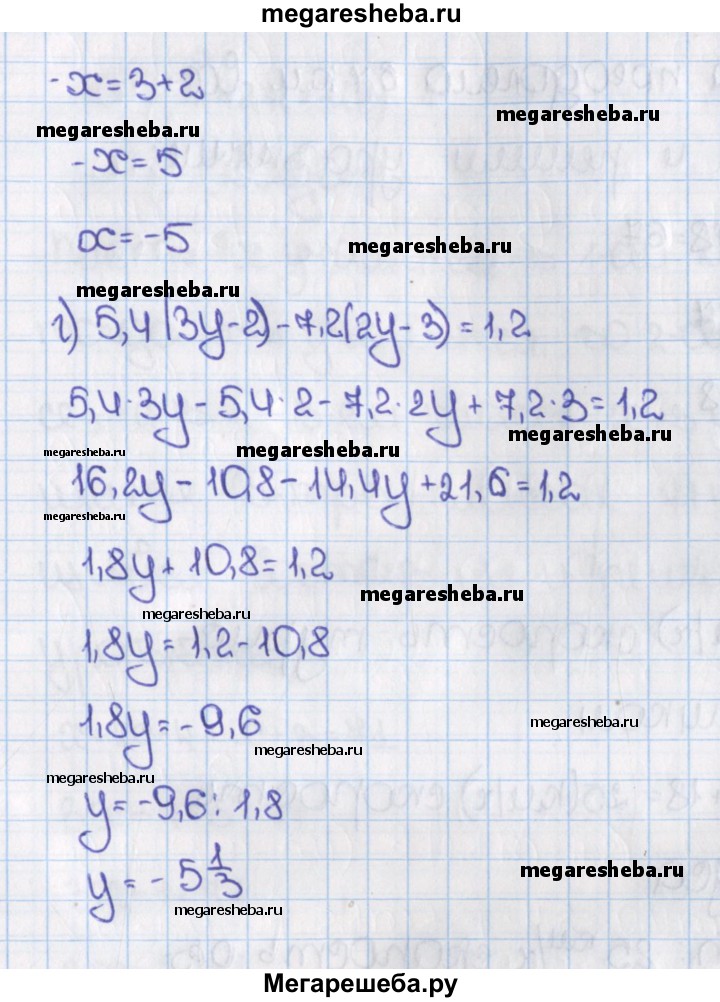 megaresheba.ru
-x=3+2
megaresheba.ru
megaresheba.ru
-x=5
x=-5
megaresheba.ru
megaresheba.ru
г) 5,4(3y-2)-7,2(2y-3)=1,2
5,4·3y-5,4·2-7,2·2y+7,2·3=1,2
megaresheba.ru
megaresheba.ru
megaresheba.ru
16,2y-10,8-14,4y+21,6=1,2
megaresheba.ru
1,8y+10,8=1,2
megaresheba.ru
megaresheba.ru
1,8y=1,2-10,8
1,8y=-9,6
megaresheba.ru
megaresheba.ru
megaresheba.ru
y=-9,6:1,8
y=-5 1/3
megaresheba.ru
megaresheba.ru
Мегарешеба.ру